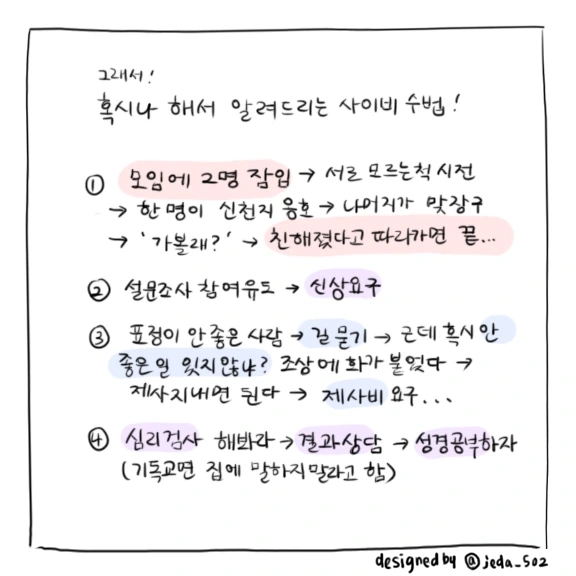 그래서!
혹시나 해서 알려드리는 사이비 수법!
① 모임에 2명 잠입 → 서로 모르는척 시전
→ 한 명이 신천지 옹호 → 나머지가 맞장구
→ '가볼래?' → 친해졌다고 따라가면 끝...
② 설문조사 참여유도 → 신상요구
③ 표정이 안 좋은 사람 → 길 묻기 → 근데 혹시 안
좋은일 있지않냐? 조상에 화가 붙었다 →
제사지내면 된다 → 제사비 요구...
④ 심리검사 해봐라 → 결과상담 → 성경공부하자
(기독교면 집에 말하지말라고 함)
designed by @jeda_502